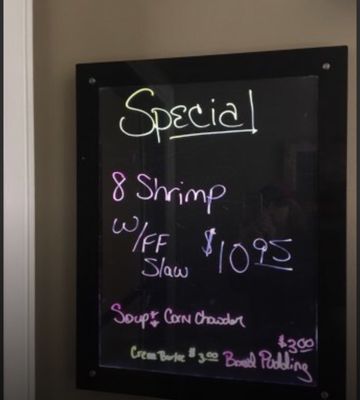 Special
8 Shrimp
W/FF $10.95
Slaw
Soup: Corn Chowder
$3.00
Crem Burlee $3.00 Bread Pudding